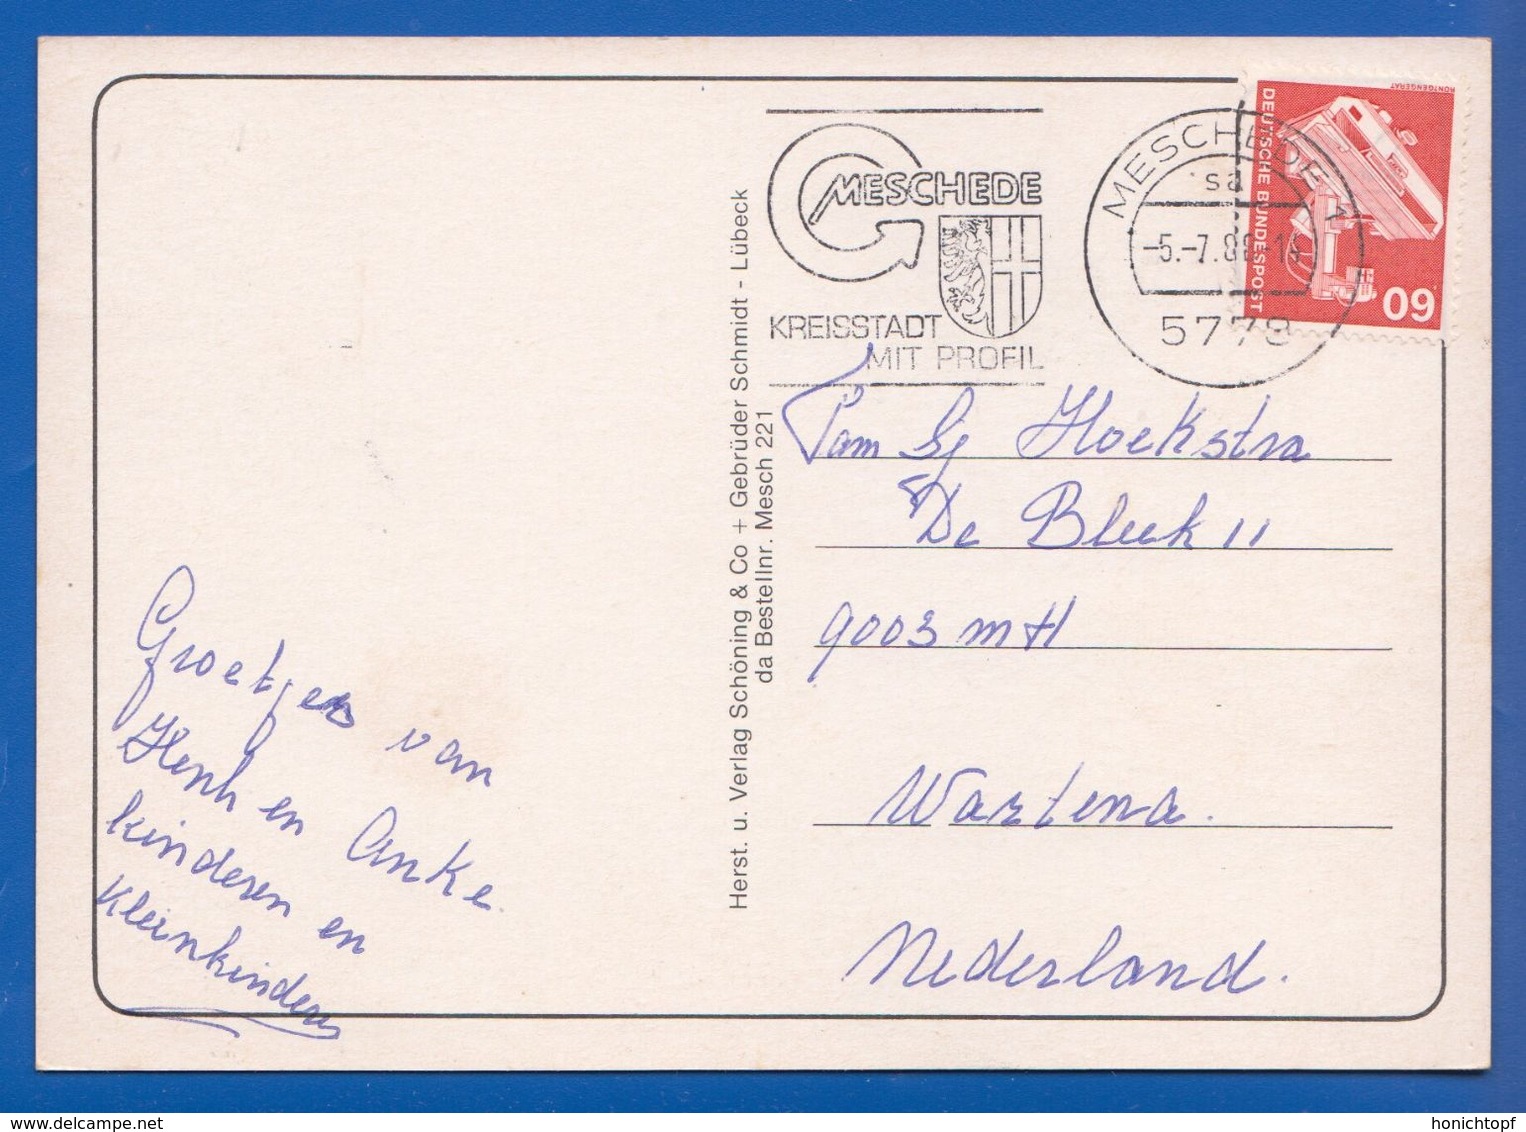 Groetjes van
Henk en Anke
kinderen en
Kleinkinderen
Herst. u. Verlag Schöning & Co + Gebrüder Schmidt - Lübeck
da Bestellnr. Mesch 221
MESCHEDE
KREISSTADT
MIT PROFIL
MESCHEDE 1
sa
-5.-7.8
5778
RÖNTGENGERÄT
DEUTSCHE BUNDESPOST
60
Fam Sj Hoekstra
De Bleek 11
9003 MH
Wartena.
Nederland.
honichtopf
www.delcampe.net